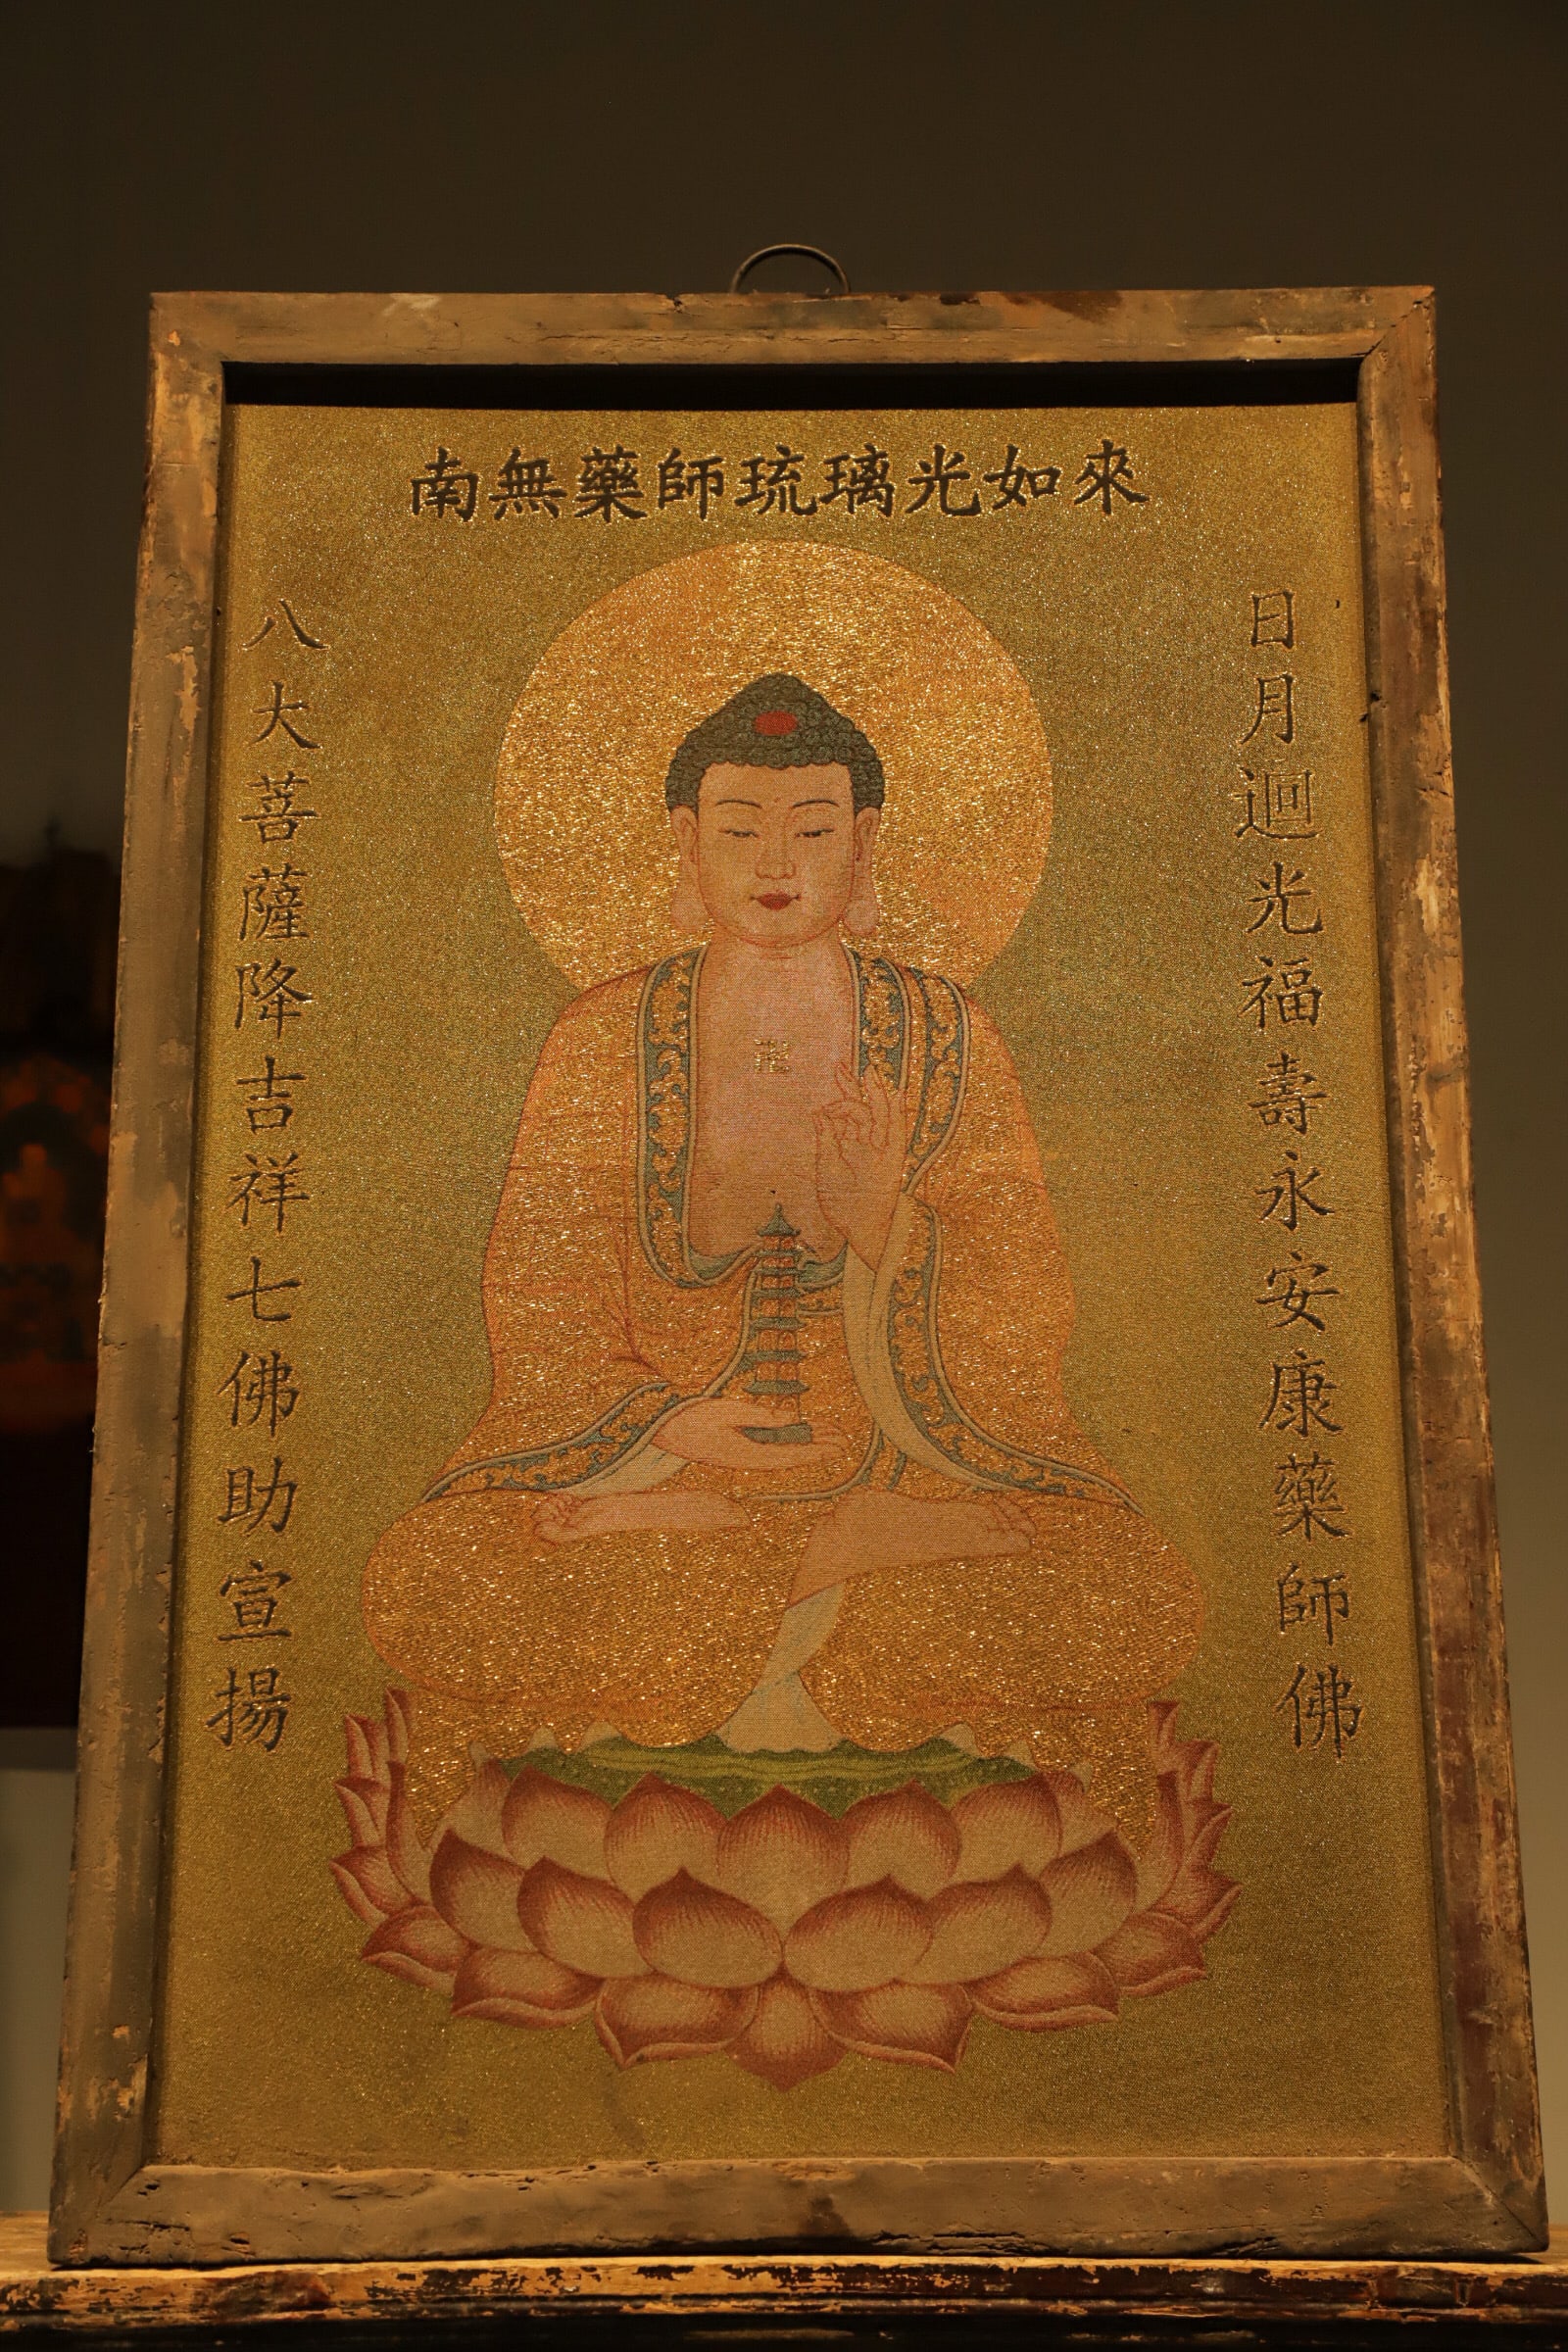 南無藥師琉璃光如來
日月迴光福壽永安康藥師佛
八大菩薩降吉祥七佛助宣揚